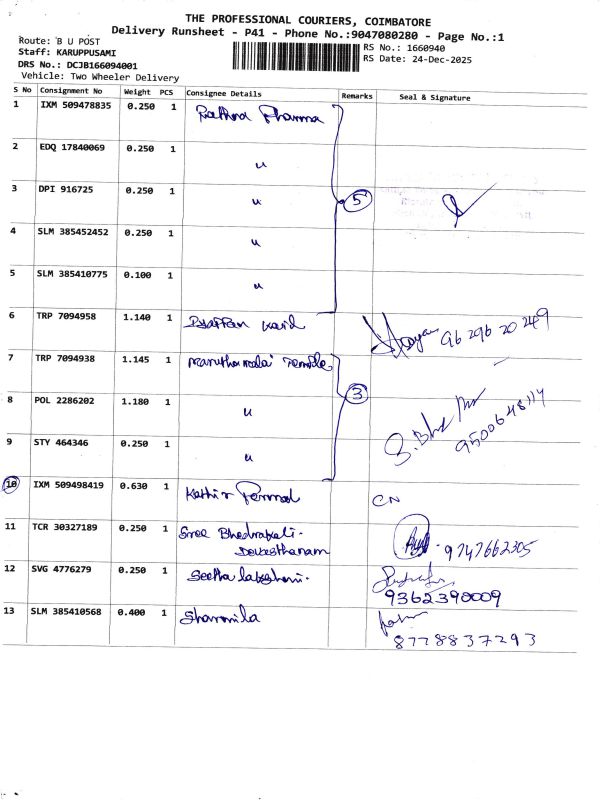 THE PROFESSIONAL COURIERS, COIMBATORE
Delivery Runsheet - P41 - Phone No.:9047080280 - Page No.:1
Route: B U POST
RS No.: 1660940
Staff: KARUPPUSAMI
RS Date: 24-Dec-2025
DRS No.: DCJB166094001
Vehicle: Two Wheeler Delivery
S No Consignment No Weight PCS Consignee Details Remarks Seal & Signature
1 IXM 509478835 0.250 1 Rathna Pharma
2 EDQ 17840069 0.250 1 "
3 DPI 916725 0.250 1 " 5
4 SLM 385452452 0.250 1 "
5 SLM 385410775 0.100 1 "
6 TRP 7094958 1.140 1 96 296 20 249
7 TRP 7094938 1.145 1 Maruthamalai Temple
8 POL 2286202 1.180 1 " 3
9 STY 464346 0.250 1 " 9500648114
10 IXM 509498419 0.630 1 Kathir CN
11 TCR 30327189 0.250 1 Sree Bhadrakali - 9747662305
Devasthanam
12 SVG 4776279 0.250 1 Seetha lakshmi. 9362390009
13 SLM 385410568 0.400 1 Sharmila
8778837293